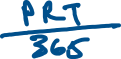 PRT
365